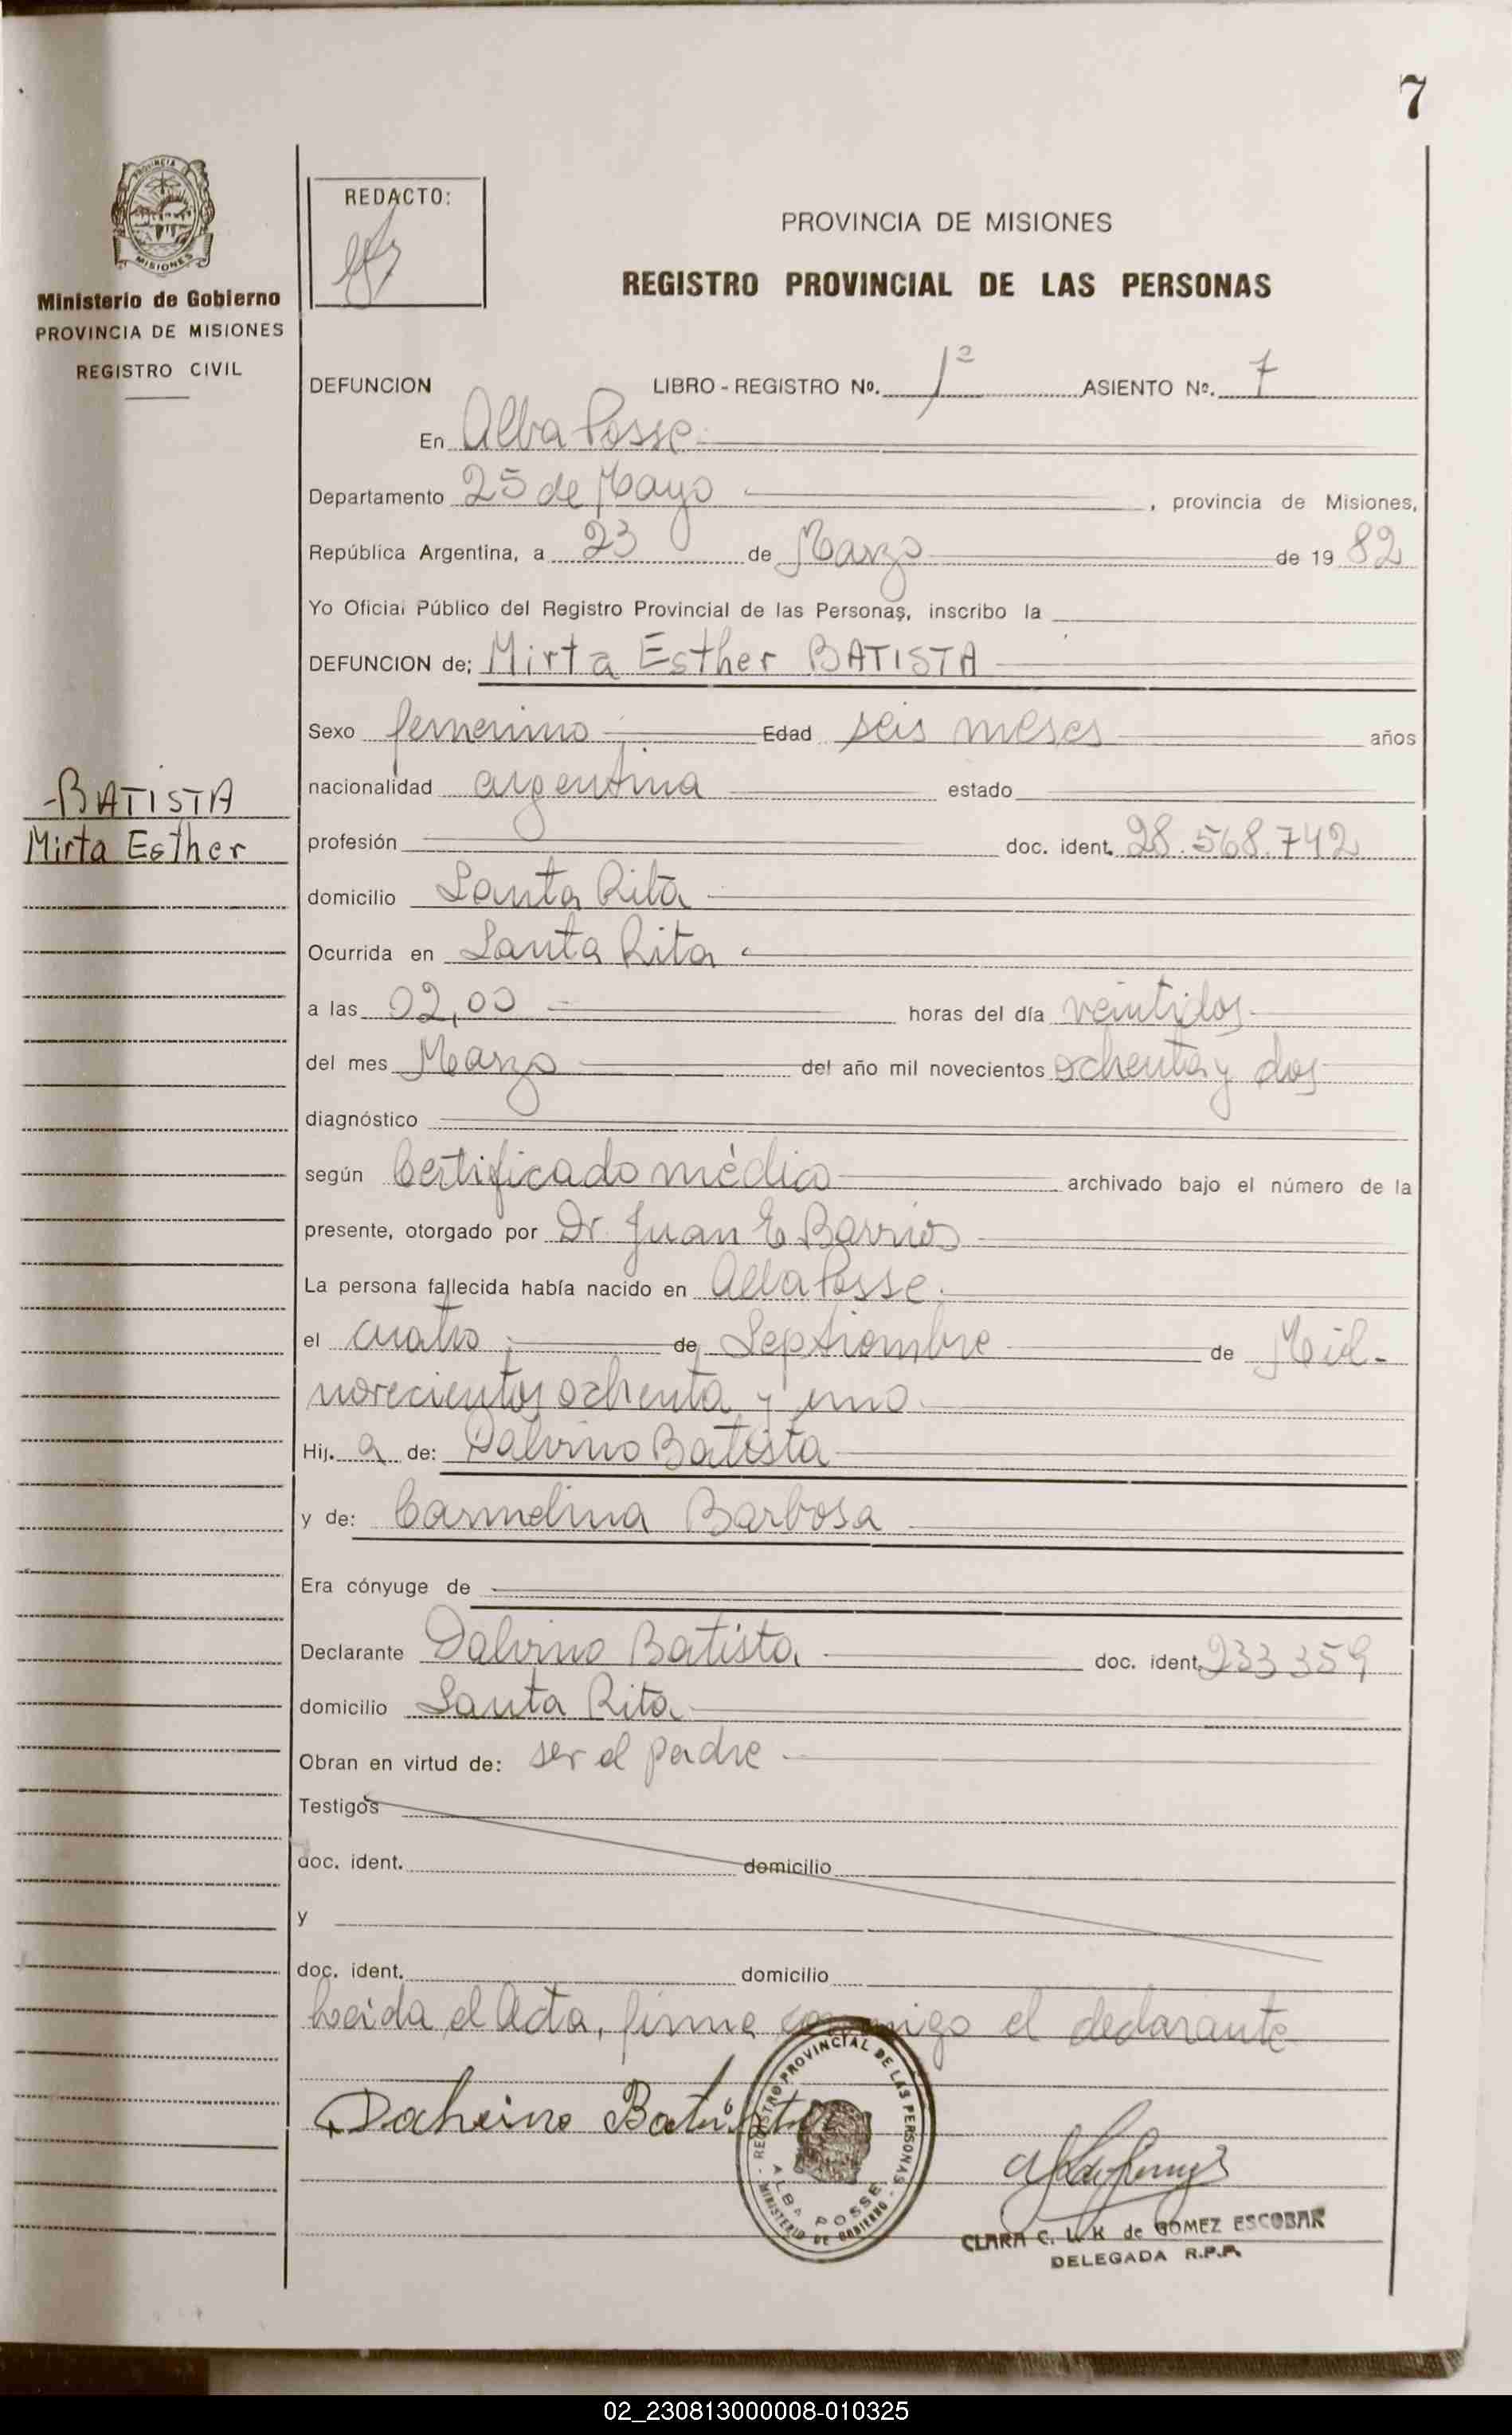 7
PROVINCIA
MISIONES
Ministerio de Gobierno
PROVINCIA DE MISIONES
REGISTRO CIVIL
REDACTO:
PROVINCIA DE MISIONES
REGISTRO PROVINCIAL DE LAS PERSONAS
DEFUNCION LIBRO - REGISTRO Nº. 1º ASIENTO Nº. 7
En Alba Posse
Departamento 25 de Mayo , provincia de Misiones,
República Argentina, a 23 de Marzo de 19 82
Yo Oficial Público del Registro Provincial de las Personas, inscribo la
DEFUNCION de; Mirta Esther BATISTA
Sexo femenino Edad seis meses años
nacionalidad argentina estado
-BATISTA
Mirta Esther
profesión doc. ident. 28.568.742
domicilio Santa Rita
Ocurrida en Santa Rita
a las 02,00 horas del día veintidos
del mes Marzo del año mil novecientos ochenta y dos
diagnóstico
según Certificado médico archivado bajo el número de la
presente, otorgado por Dr. Juan E Barrios
La persona fallecida había nacido en Alba Posse
el cuatro de Septiembre de Mil
novecientos ochenta y uno
Hij. a de: Dalvino Batista
y de: Carmelina Barbosa
Era cónyuge de
Declarante Dalvino Batista doc. ident. 233359
domicilio Santa Rita
Obran en virtud de: ser el padre
Testigos
doc. ident. domicilio
y
doc. ident. domicilio
Leida el Acta, firma conmigo el declarante
Batista
REGISTRO PROVINCIAL DE LAS PERSONAS
ALBA POSSE
MINISTERIO DE GOBIERNO
CLARA C. L. K de GOMEZ ESCOBAR
DELEGADA R.P.P.
02_230813000008-010325